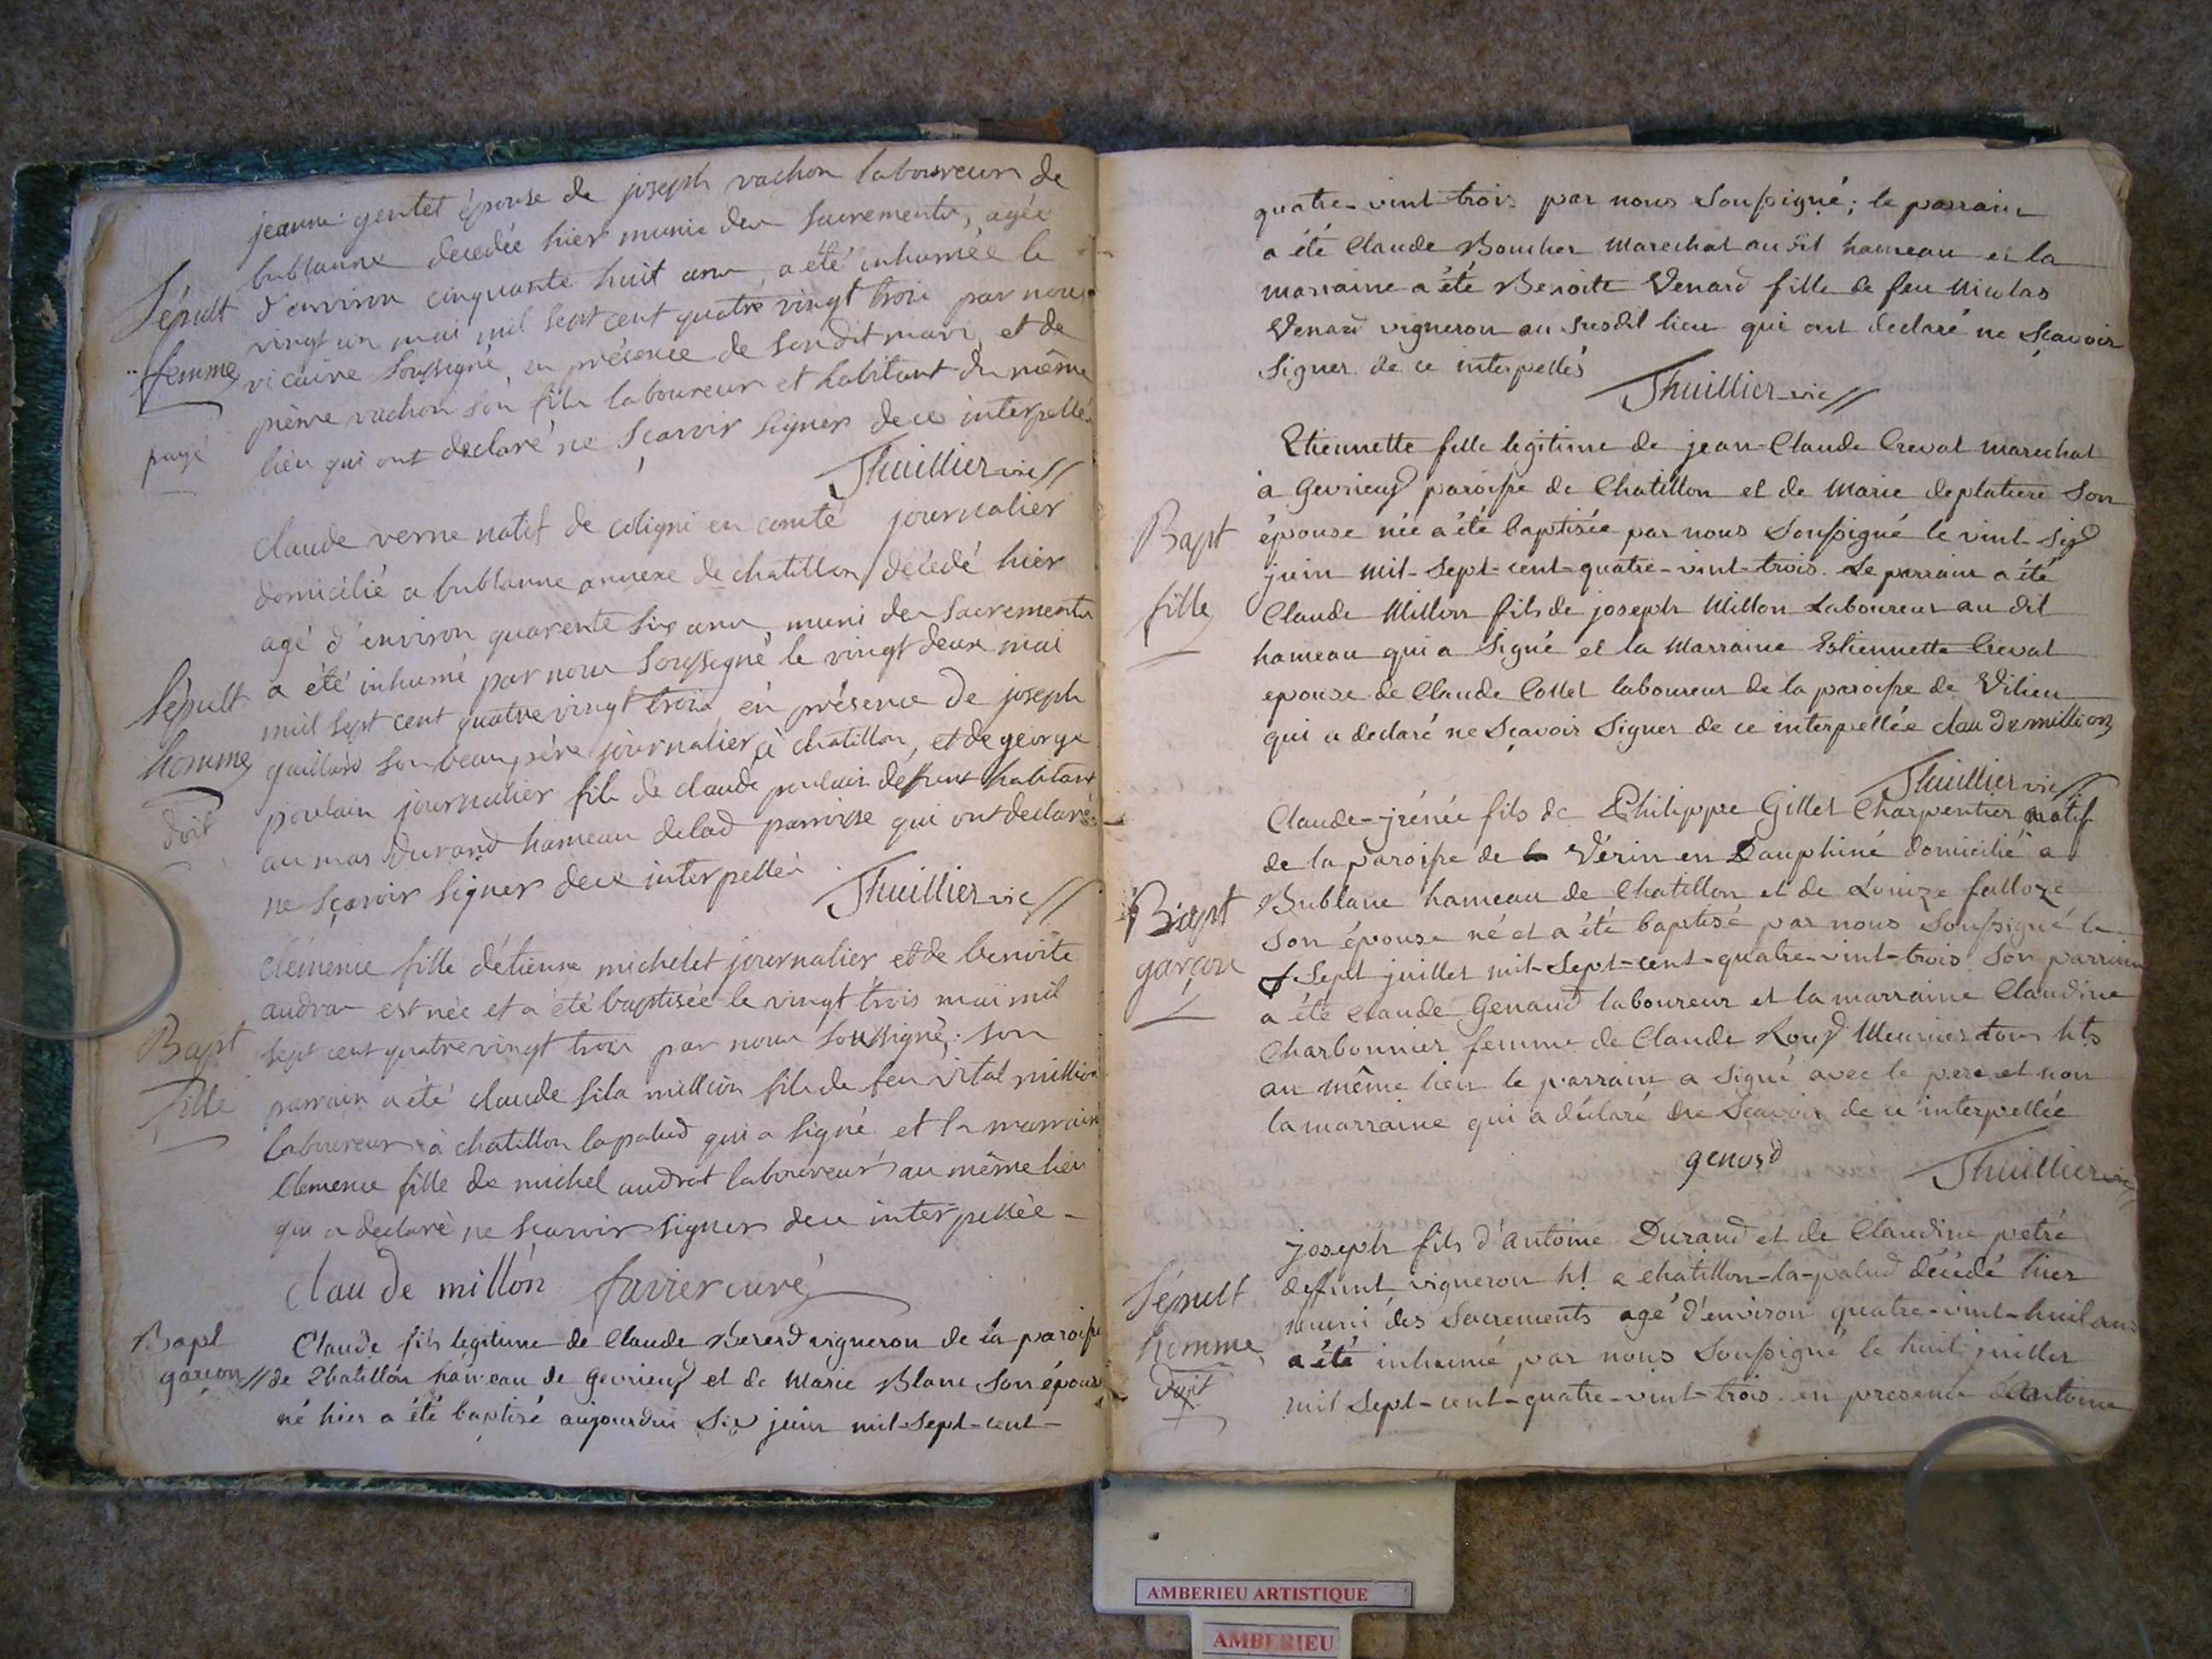 jeanne gentet épouse de joseph vachon laboureur de
bublanne decedée hier munie des sacrements, agée
Sépult d'environ cinquante huit ans, a été inhumée le
vingt un mai mil sept cent quatre vingt trois par nous
femme vicaire soussigné, en présence de son dit mari, et de
pierre vachon son fils laboureur et habitant du même
payé lieu qui ont declaré ne sçavoir signer de ce interpellés
Thuillier vic
claude verne natif de coligni en comté journalier
domicilié a bublanne annexe de chatillon décédé hier
agé d'environ quarente six ans, muni des sacrements
a été inhumé par nous soussigné le vingt deux mai
Sépult mil sept cent quatre vingt trois en présence de joseph
homme gaillard son beau père journalier à chatillon, et de george
doit poulain journalier fils de claude poulain défunt habitant
au mas durand hameau de lad parroisse qui ont declaré
ne sçavoir signer de ce interpellés
Thuillier vic
clémence fille d'étienne michelet journalier et de benoite
audras est née et a été baptisée le vingt trois mai mil
Bapt sept cent quatre vingt trois par nous soussigné, son
fille parrain a été claude fils a million fils de feu vital million
laboureur à chatillon lapalud qui a signé et la marraine
Clemence fille de michel audrat laboureur au même lieu
qui a declaré ne sçavoir signer de ce interpellée
claude millon favier curé
Bapt Claude fils legitime de Claude Bererd vigneron de la paroisse
garçon de Chatillon hameau de Gevrieux et de Marie Blanc son épouse
né hier a été baptisé aujourdui six juin mil-sept-cent-
quatre-vint-trois par nous soussigné; le parrain
a été Claude Boucher marechal au dit hameau et la
marraine a été Benoite Venard fille de feu Nicolas
Venard vigneron au susdit lieu qui ont declaré ne sçavoir
signer de ce interpellés
Thuillier vic
Etiennette fille legitime de jean-Claude Creval marechal
à Gevrieux paroisse de Chatillon et de Marie deplatiere son
Bapt épouse née a été baptisée par nous soussigné le vint six
juin mil-sept-cent-quatre-vint-trois. Le parrain a été
fille Claude Millon fils de joseph Millon Laboureur au dit
hameau qui a signé et la Marraine Estiennette Creval
epouse de Claude Collet laboureur de la paroisse de Vilieu
qui a declaré ne sçavoir signer de ce interpellée claude million
Thuillier vic
Claude-jrénée fils de Philippe Gillet Charpentier natif
de la paroisse de Vérin en Dauphiné domicilié a
Bapt Bublane hameau de Chatillon et de Louize falloze
son épouse né et a été baptisé par nous soussigné le
garçon sept juillet mil-sept-cent-quatre-vint-trois son parrain
a été Claude Genaud laboureur et la marraine Claudine
Charbonnier femme de Claude Roux Meunier tous hts
au même lieu le parrain a signé avec le pere et non
la marraine qui a déclaré ne sçavoir de ce interpellée
genard Thuillier vic
joseph fils d'antoine Durand et de Claudine petré
Sépult deffunt vigneron ht a chatillon-la-palud décédé hier
muni des sacrements agé d'environ quatre-vint-huit ans
homme a été inhumé par nous soussigné le huit juillet
doit mil sept-cent-quatre-vint-trois en presence d'Antoine
AMBERIEU ARTISTIQUE
AMBERIEU